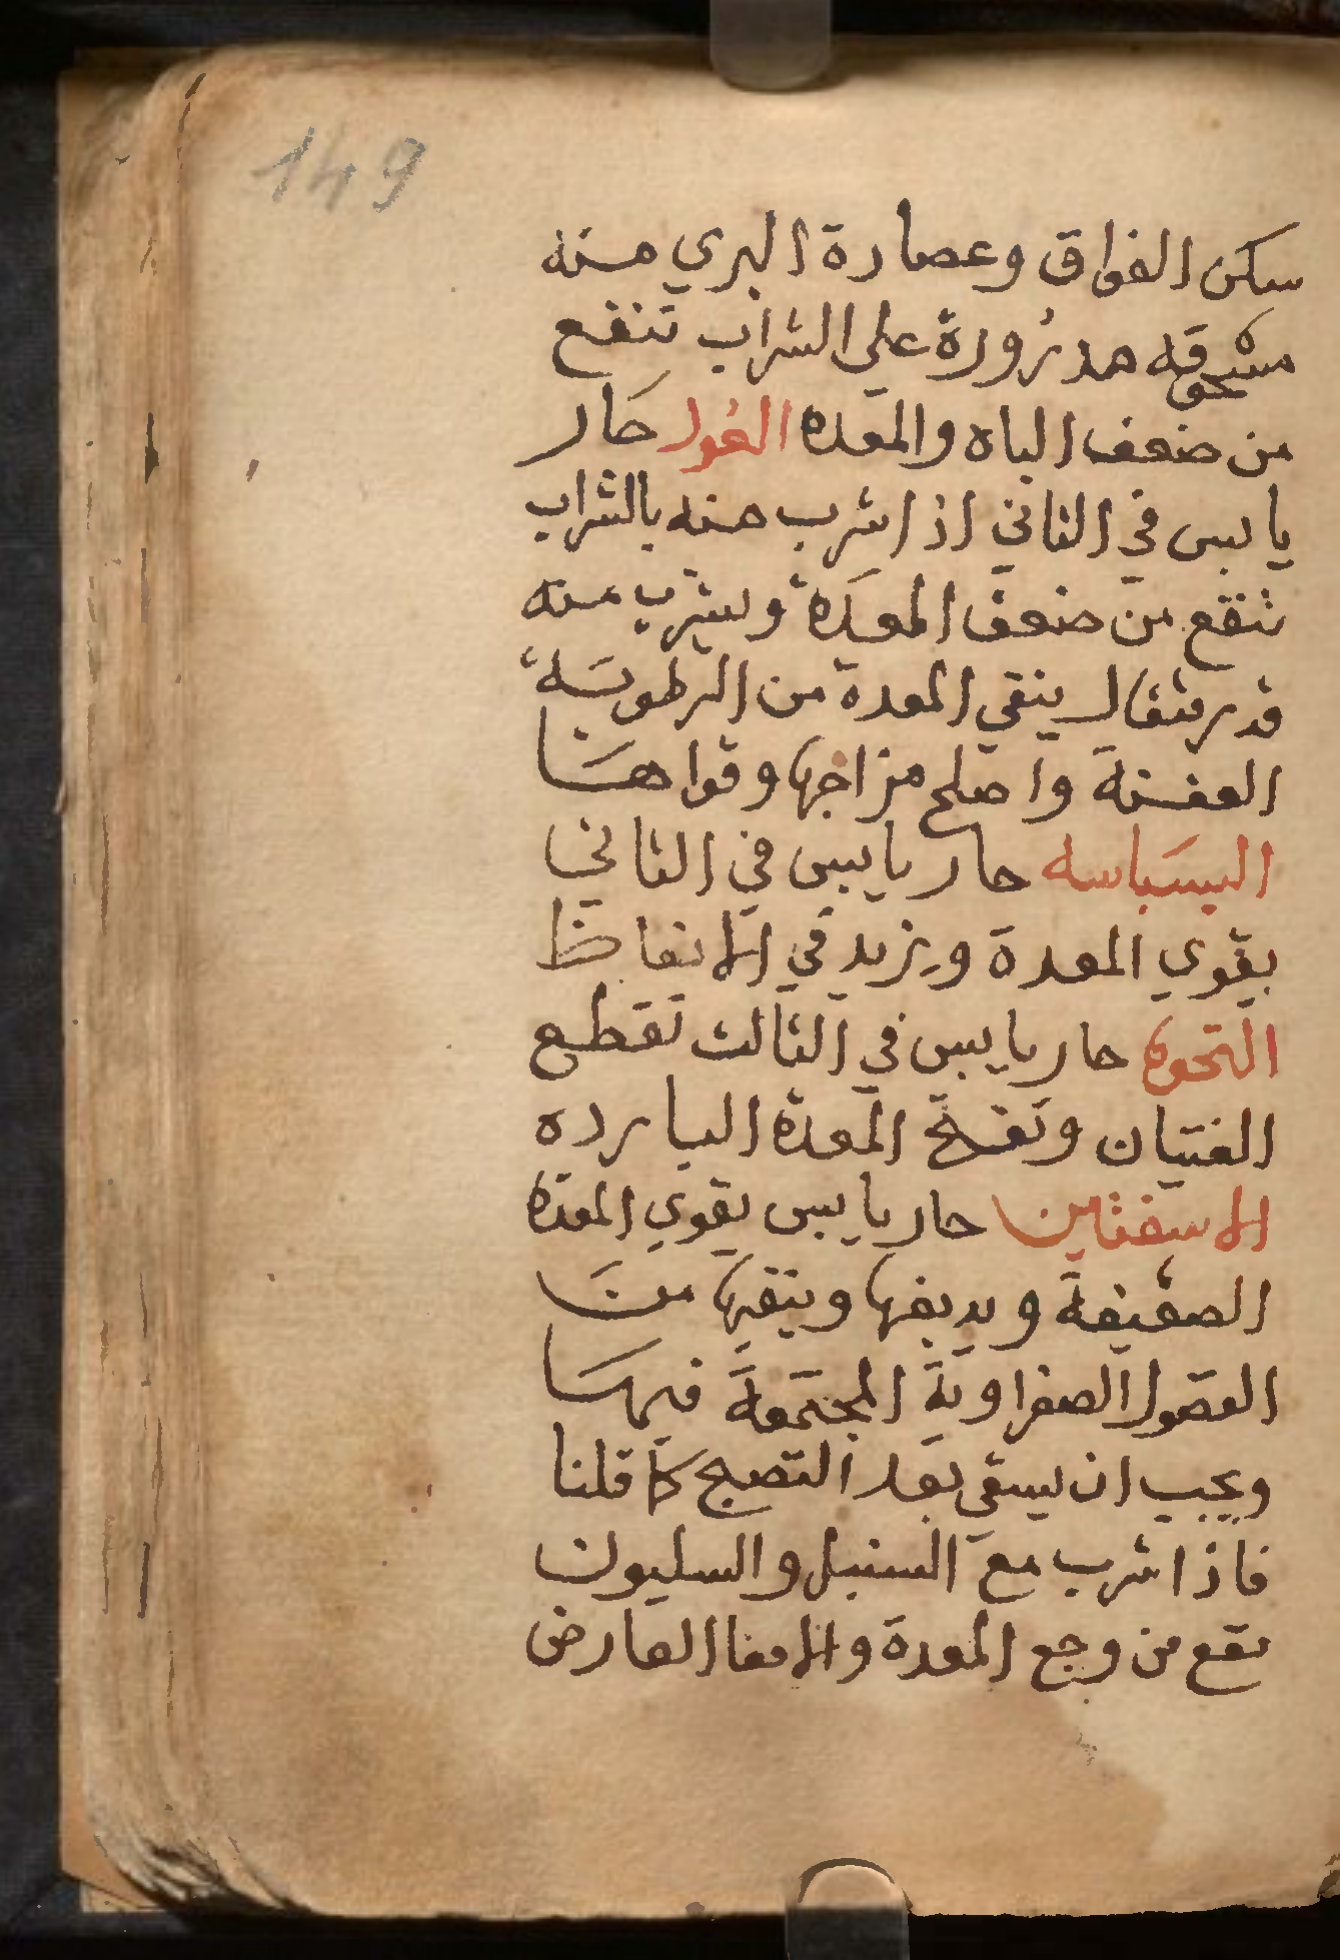 149
سكن الفواق وعصارة البري منه
مسحوقه مدرورة علي الشراب تنفع
من ضعف الباه والمعده الفول حار
يابس في الثاني اذا شرب منه بالشراب
تنفع من ضعف المعدة ويشرب منه
قدر مثقال ينقي المعدة من الرطوبة
العفنة واصلح مزاجها وقواها
البسباسه حار يابس في الثاني
يقوي المعدة ويزيد في الانعاظ
النحوه حار يابس في الثالث تقطع
الغثيان وتفتح المعدة البارده
الاسفنثين حار يابس يقوي المعدة
الضعيفة ويدبغها وينقيها من
الفضول الصفراوية المجتمعة فيها
ويجب ان يسقي بعد النضج كما قلنا
فاذا شرب مع السنبل والسليون
نفع من وجع المعدة والامعا العارض